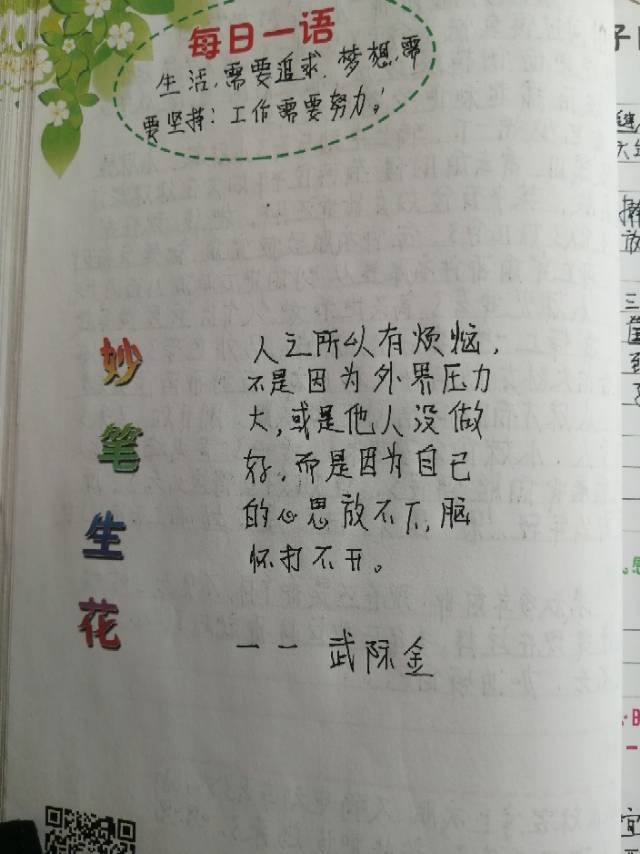 每日一语
生活,需要追求,梦想,需
要坚持:工作需要努力!
妙笔生花
人之所以有烦恼,
不是因为外界压力
大,或是他人没做
好,而是因为自己
的心思放不下,脑
怀打不开。
一一 武际金